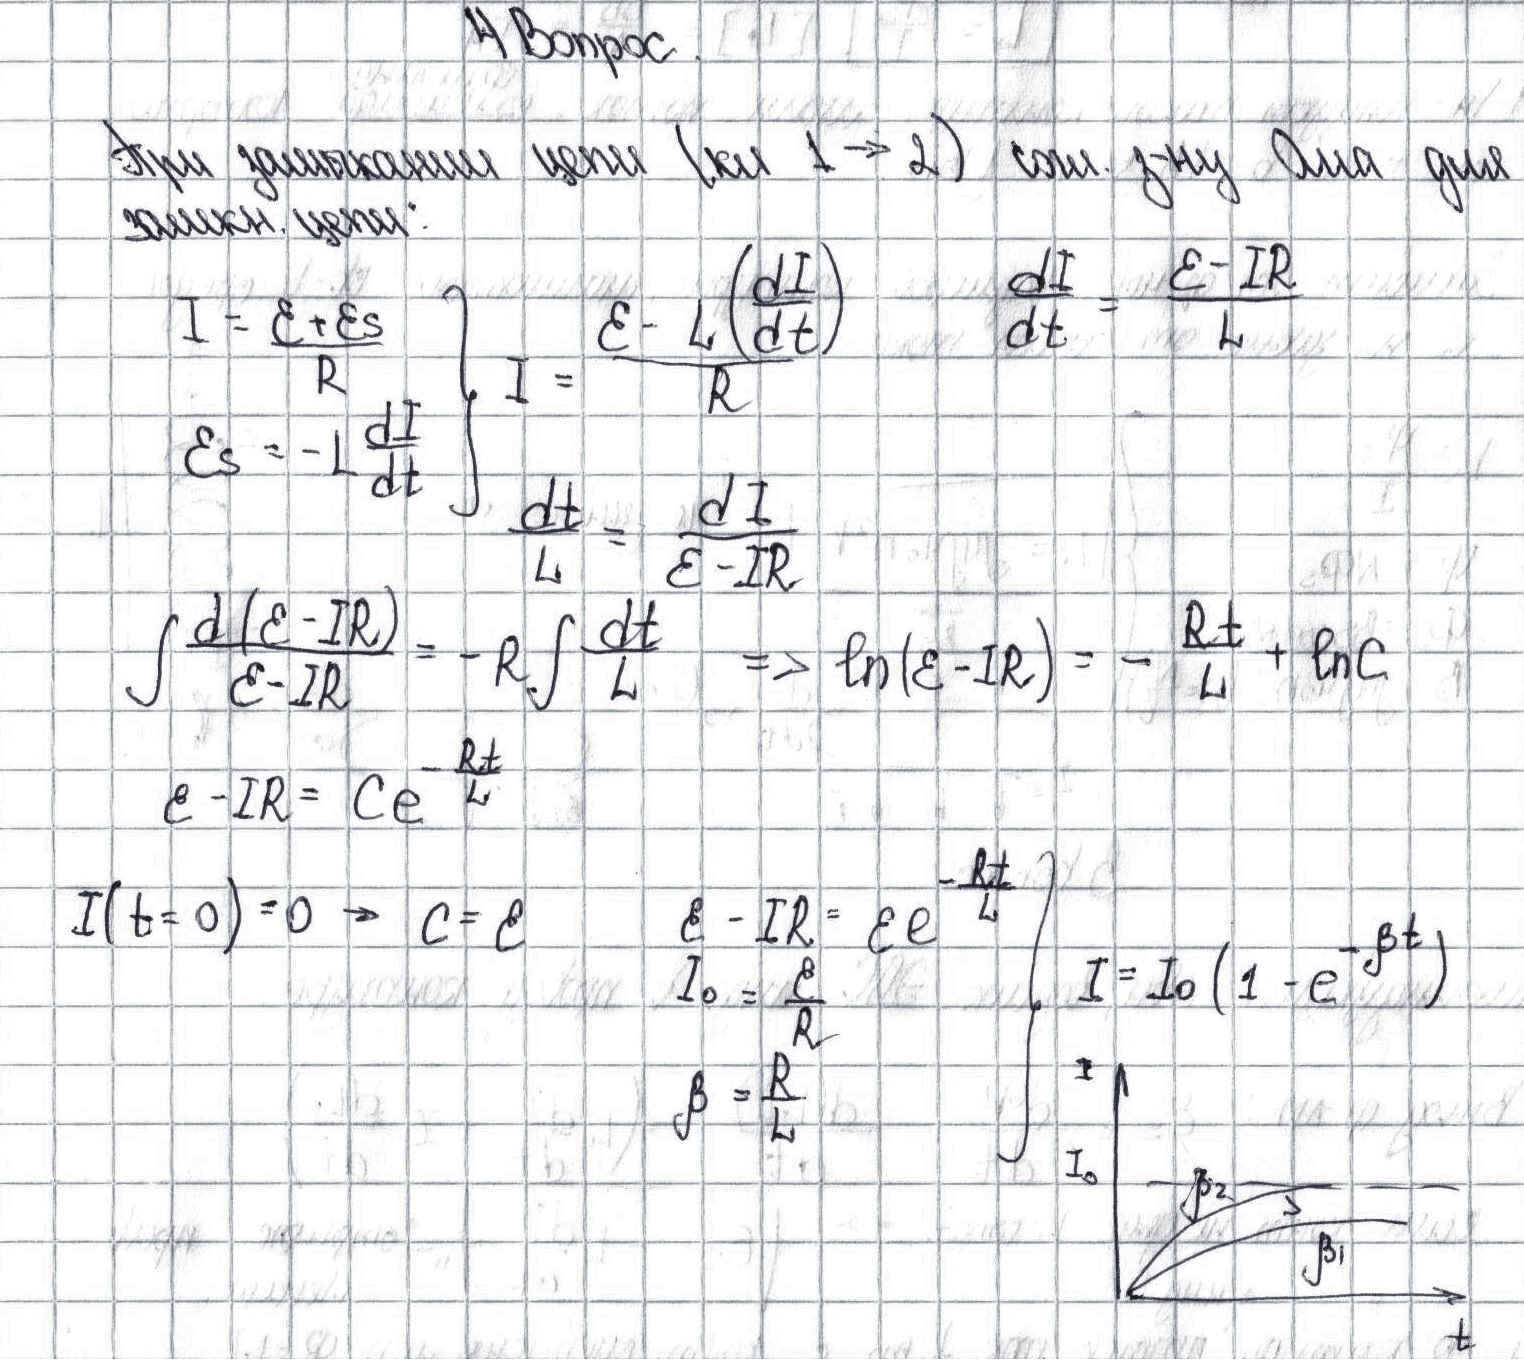 4 Вопрос.
При замыкании цепи (кл 1 → 2) сотл. з-ну Ома для
замкн. цепи:
I = (ε + εs)/R
εs = -L dI/dt
I = (ε - L(dI/dt))/R
dI/dt = (ε - IR)/L
dt/L = dI/(ε - IR)
∫ d(ε - IR)/(ε - IR) = -R ∫ dt/L => ln(ε - IR) = - Rt/L + lnC
ε - IR = Ce^(-Rt/L)
I(t=0)=0 → C = ε
ε - IR = εe^(-Rt/L)
I₀ = ε/R
β = R/L
I = I₀(1 - e^(-βt))
I
I₀
β₂
>
β₁
t